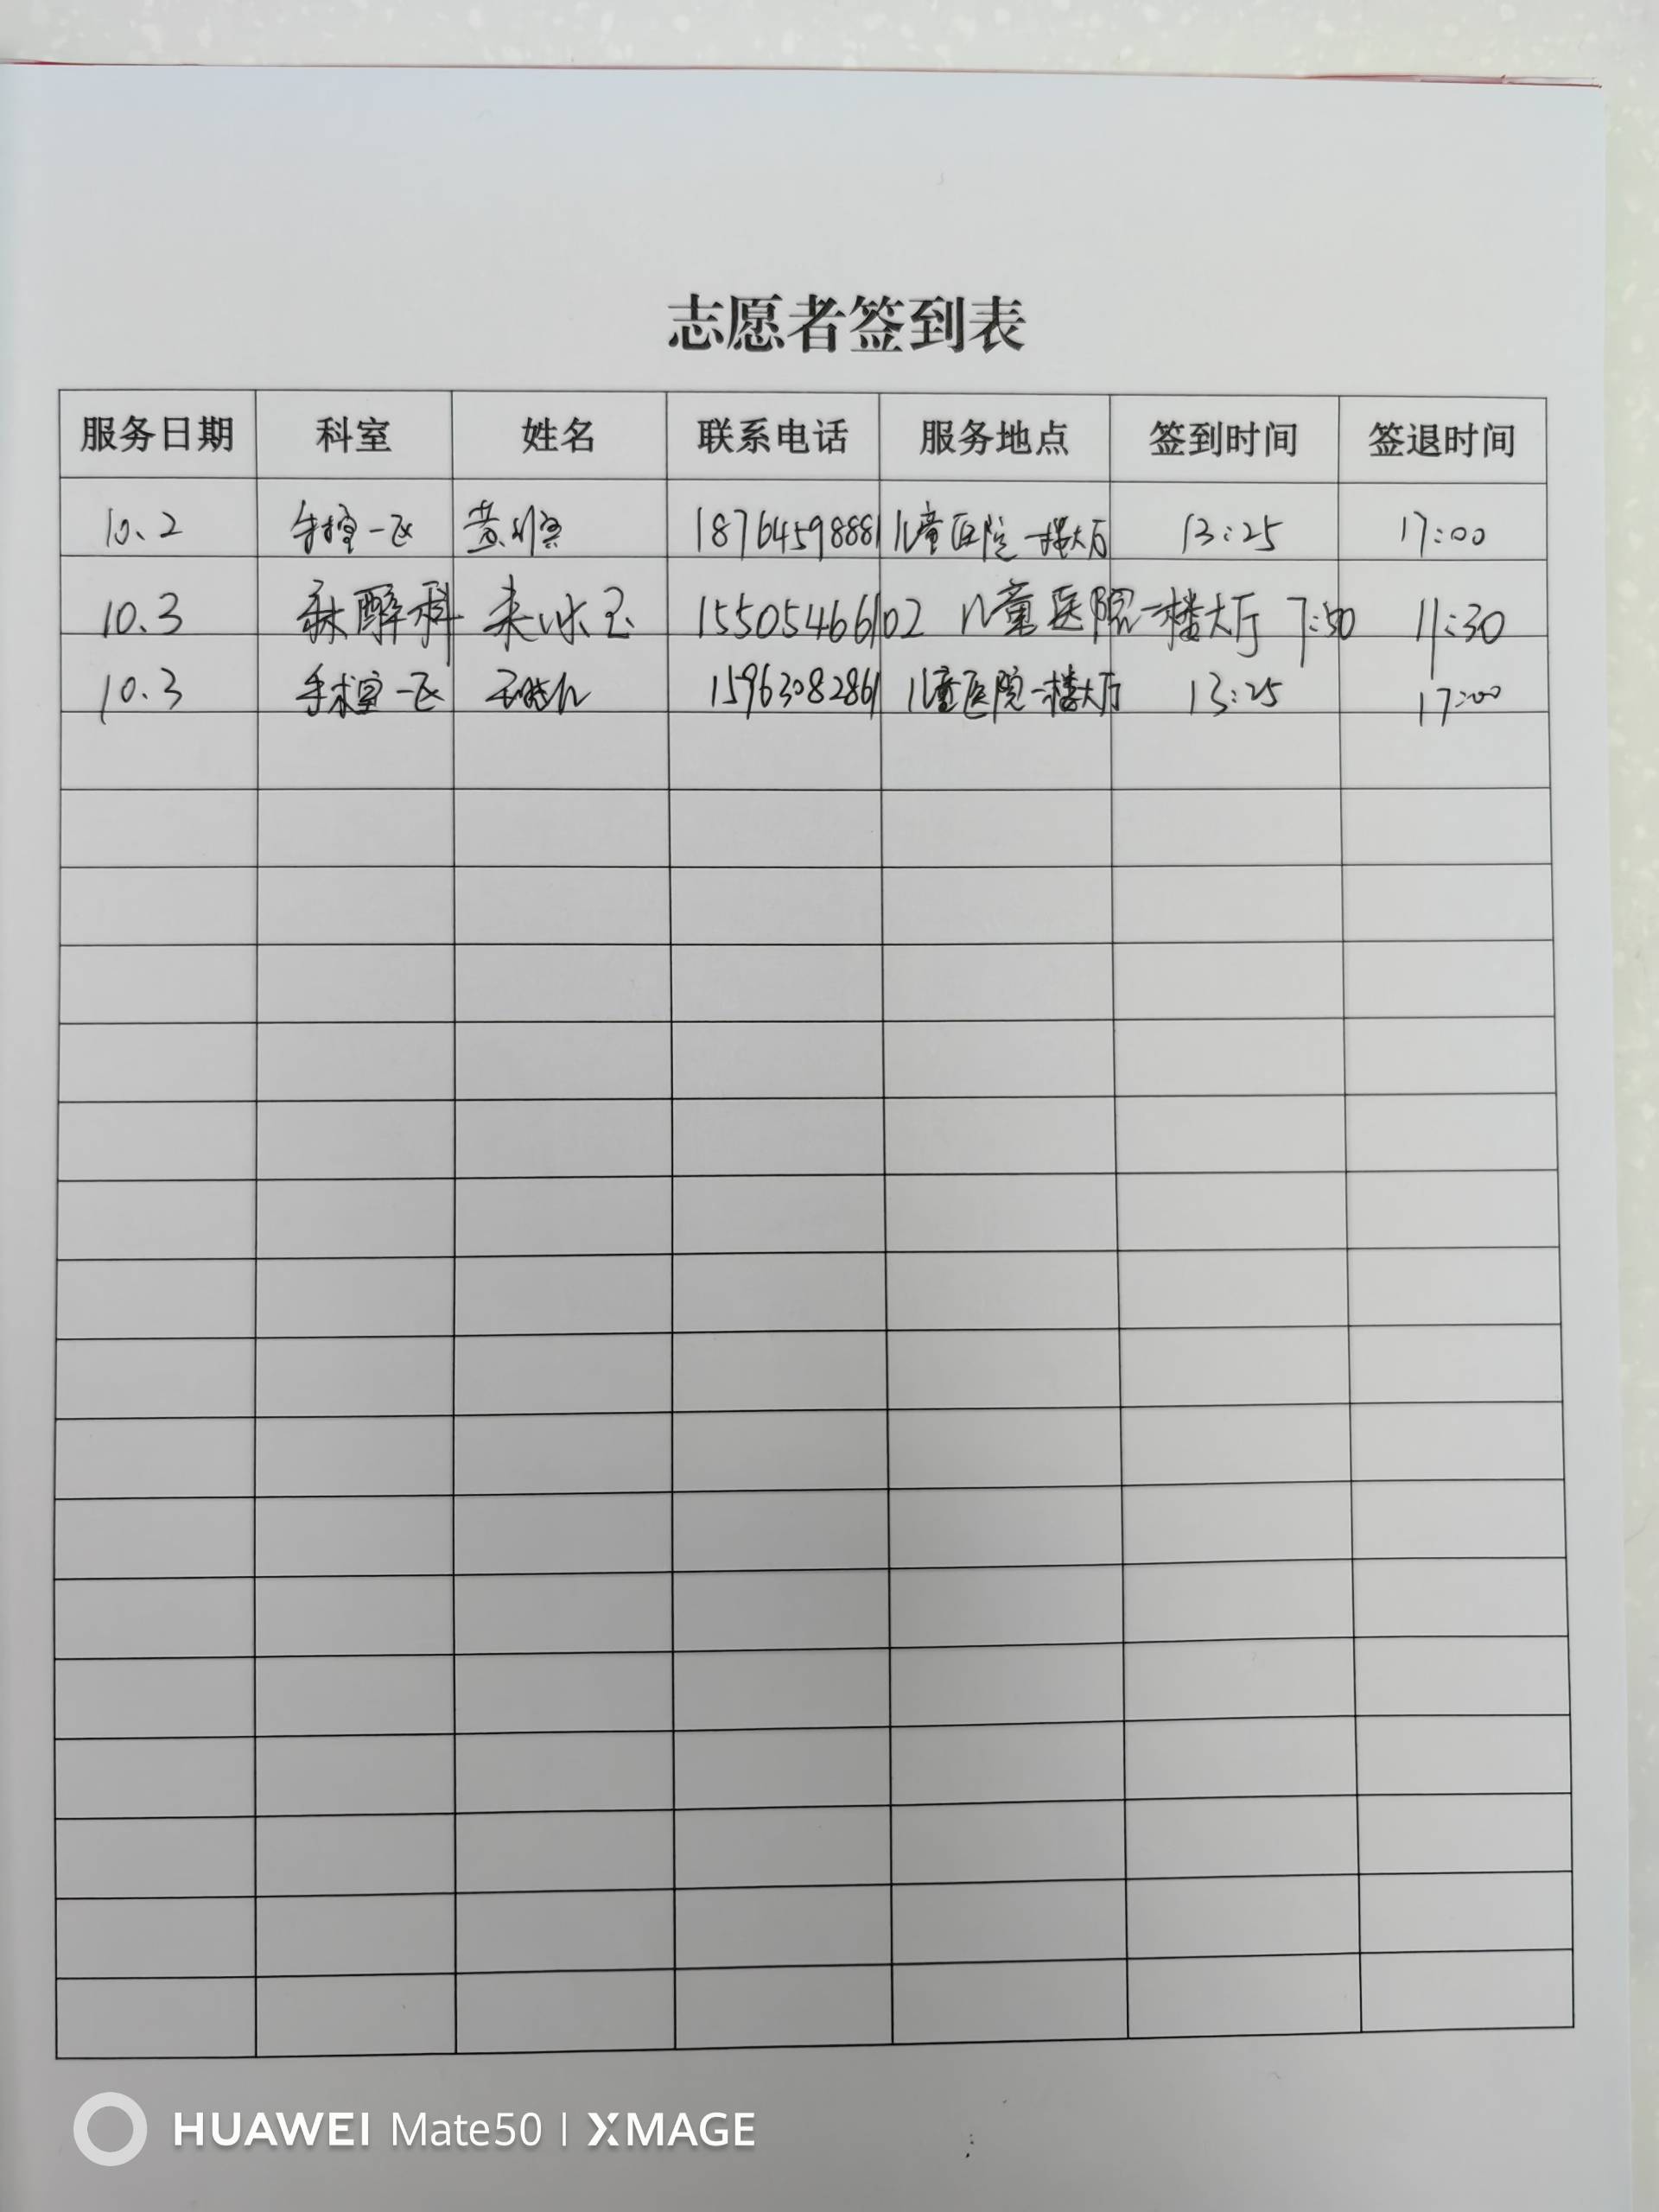 志愿者签到表
服务日期 科室 姓名 联系电话 服务地点 签到时间 签退时间
10.2 手术室一区 黄 18764598881 儿童医院一楼大厅 13:25 17:00
10.3 麻醉科 来冰玉 15505466102 儿童医院一楼大厅 7:50 11:30
10.3 手术室一区 15963082861 儿童医院一楼大厅 13:25 17:00
HUAWEI Mate50 | XMAGE